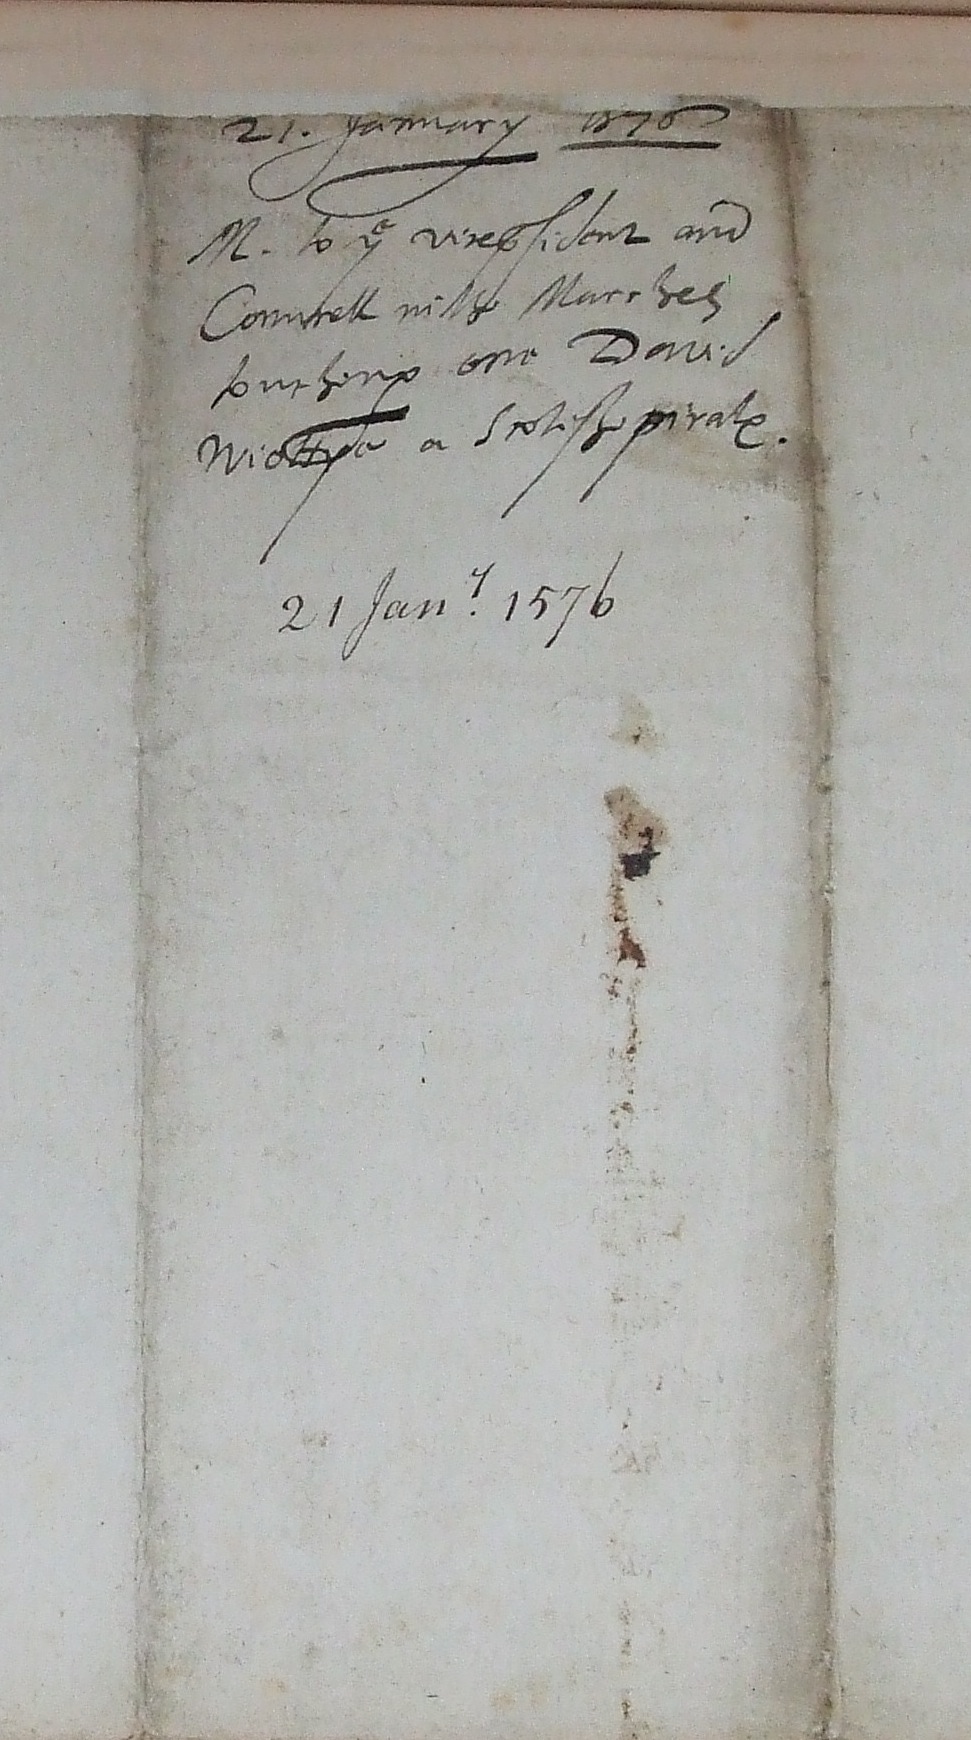 21. January 1576
M. to yᵉ vicepsident and
Counsell in the Marches
touching one David
a Scotishe pirate.
21 Janʸ. 1576